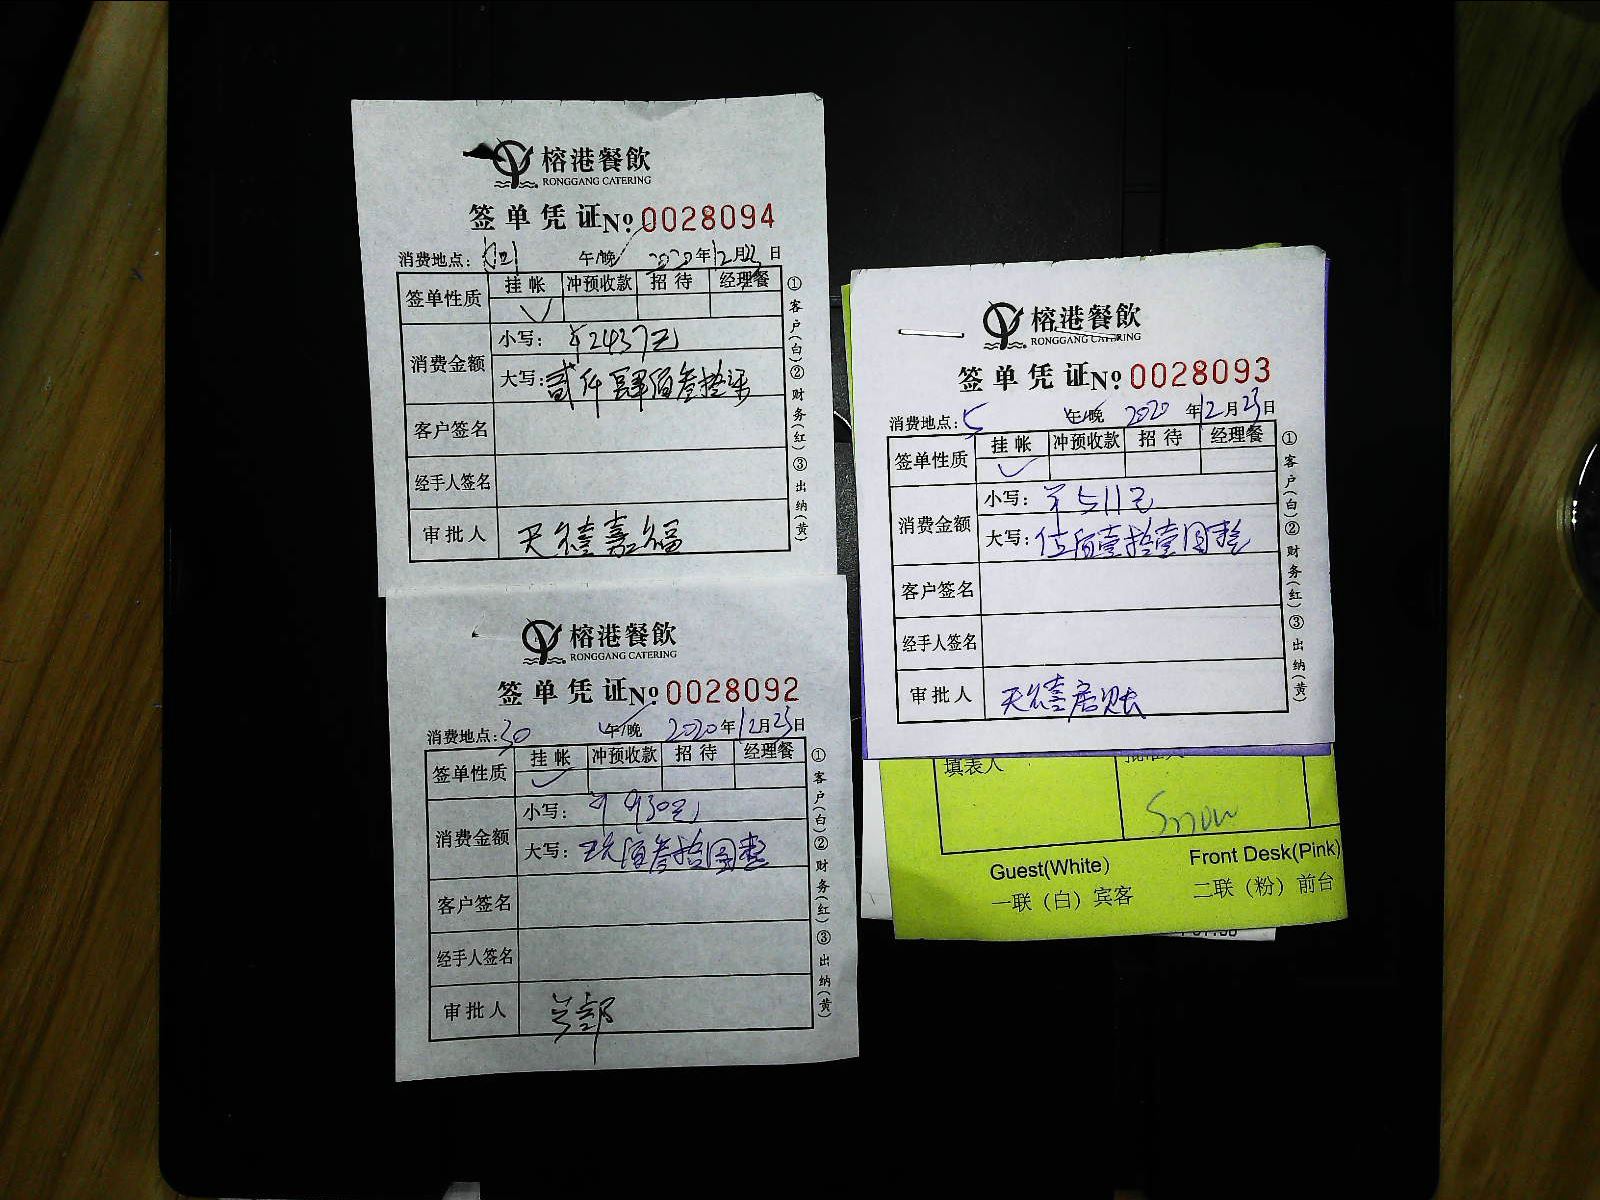 榕港餐飲
RONGGANG CATERING
签单凭证 No 0028094
消费地点: 午/晚 2020年12月23日
签单性质 挂帐 冲预收款 招待 经理餐
消费金额 小写: ¥2437元
大写: 贰仟肆佰叁拾柒
客户签名
经手人签名
审批人 天禧嘉福
①客户(白)②财务(红)③出纳(黄)
榕港餐飲
RONGGANG CATERING
签单凭证 No 0028092
消费地点: 30 午/晚 2020年12月23日
签单性质 挂帐 冲预收款 招待 经理餐
消费金额 小写: ¥930元
大写: 玖佰叁拾圆整
客户签名
经手人签名
审批人
①客户(白)②财务(红)③出纳(黄)
榕港餐飲
RONGGANG CATERING
签单凭证 No 0028093
消费地点: 5 午/晚 2020年12月23日
签单性质 挂帐 冲预收款 招待 经理餐
消费金额 小写: ¥511元
大写: 伍佰壹拾壹圆整
客户签名
经手人签名
审批人 天禧房账
①客户(白)②财务(红)③出纳(黄)
填表人
Snow
Guest(White) Front Desk(Pink)
一联（白）宾客 二联（粉）前台